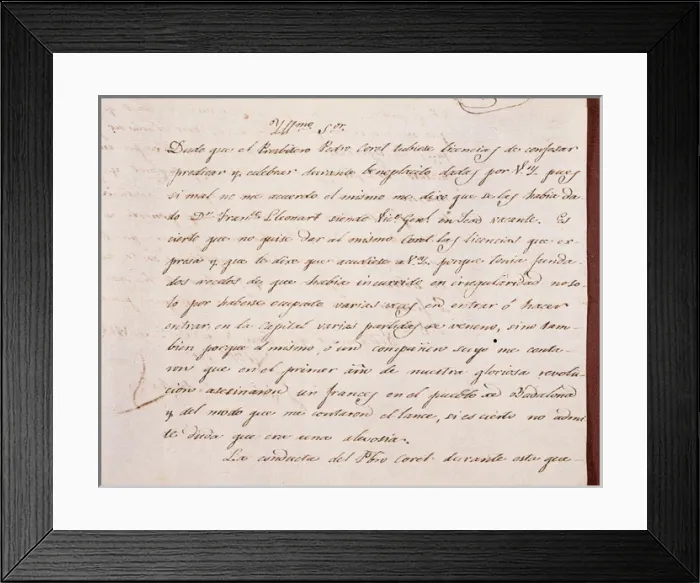 Yllmo Sor.
Dudo que el Presbitero Pedro Corel tubiese licencias de confesar
predicar y celebrar durante beneplacito dadas por V.S.Y. pues
si mal no me acuerdo el mismo me dixo que se las habia da-
do Dn. Franco. Lleonart siendo Vico. Genl. en Sede vacante. Es
cierto que no quise dar al mismo Corel las licencias que ex-
presa y que le dixe que acudiese a V.S.Y. porque tenia funda-
dos recelos de que habia incurrido en irregularidad no so-
lo por haberse ocupado varias veces en entrar ó hacer
entrar en la Capital varias partidas de veneno, sino tam-
bien porque el mismo, ó un compañero suyo me conta-
ron que en el primer año de nuestra gloriosa revolu-
cion asesinaron un frances en el pueblo de Badalona
y del modo que me contaron el lance, si es cierto no admi-
te duda que era una alevosia.
La conducta del Pbro Corel durante esta gue-